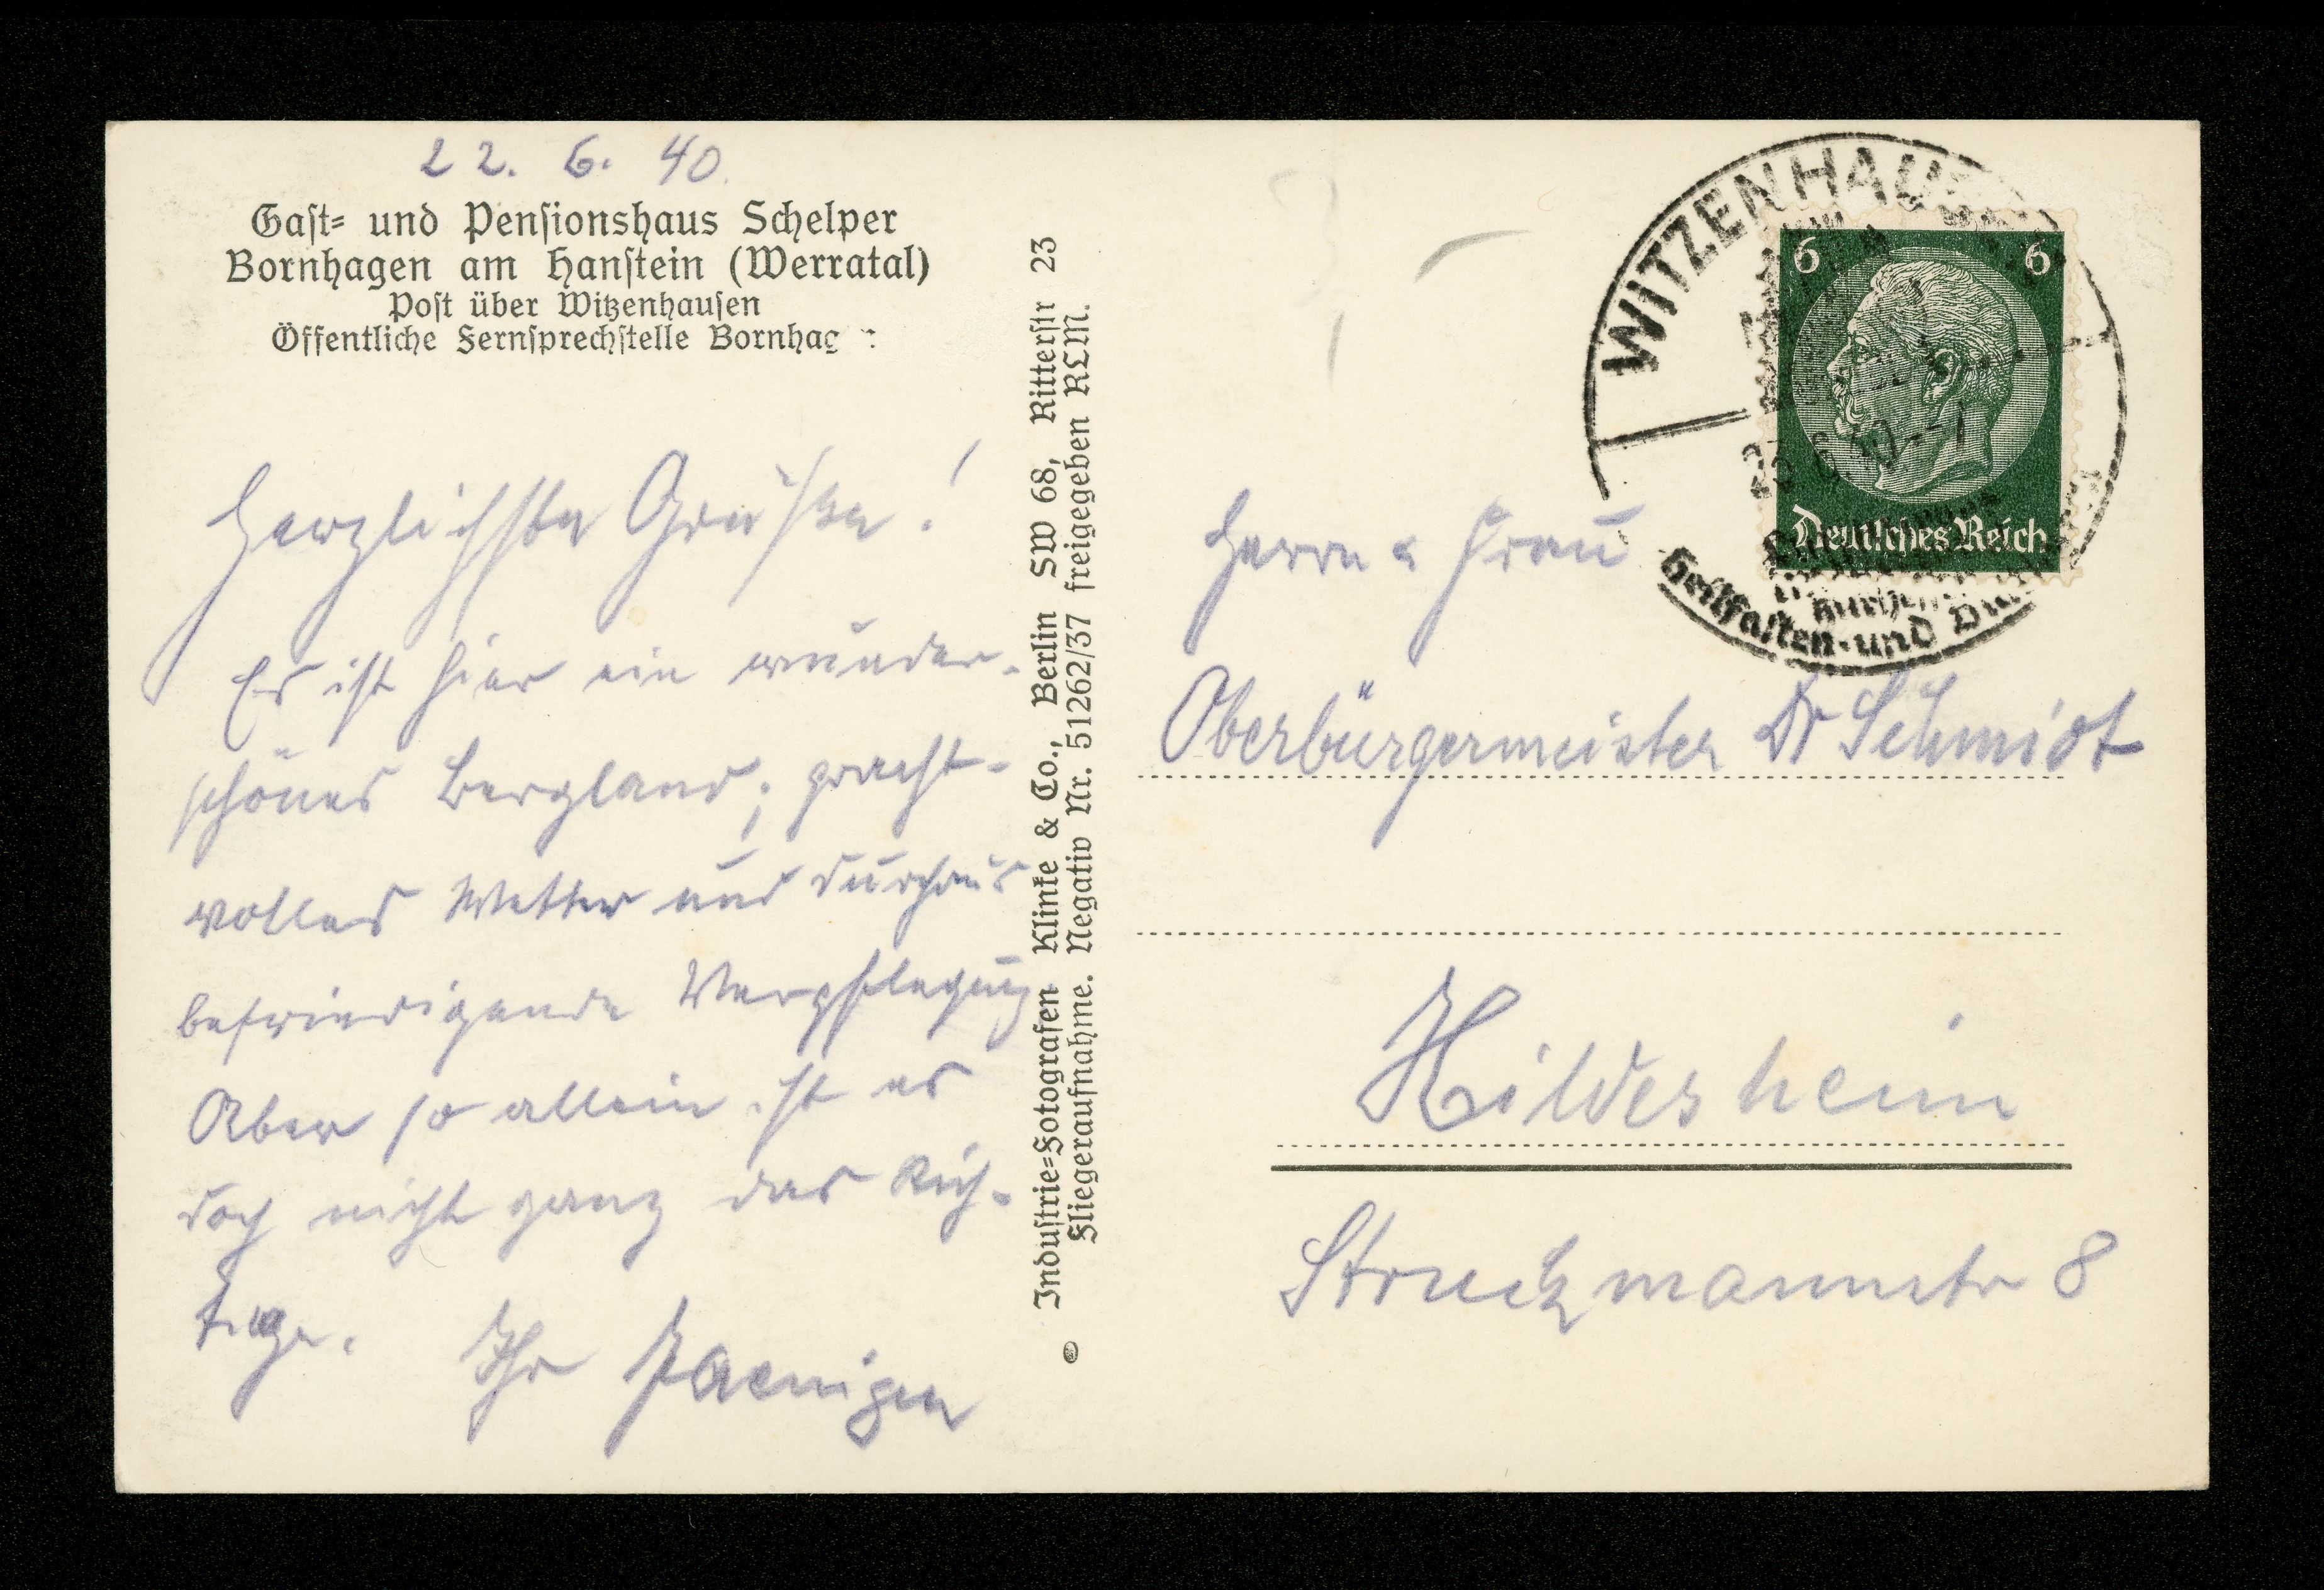 22. 6. 40.
Gast= und Pensionshaus Schelper
Bornhagen am Hanstein (Werratal)
Post über Witzenhausen
Öffentliche Fernsprechstelle Bornhag
Herzlichste Grüße!
Es ist hier ein wunder-
schönes Bergland; pracht-
volles Wetter und durchaus
befriedigende Verpflegung
Aber so allein ist es
doch nicht ganz das Rich-
tige.
Ihr
Industrie=Fotografen Klinke & Co., Berlin SW 68, Ritterstr 23
Fliegeraufnahme. Negativ Nr. 51262/37 freigegeben RLM.
WITZENHAUS
23.6.40.-7
Textilfasten-und
6 6
Deutsches Reich
Herrn u Frau
Oberbürgermeister Dr Schmidt
Hildesheim
Struckmannstr 8